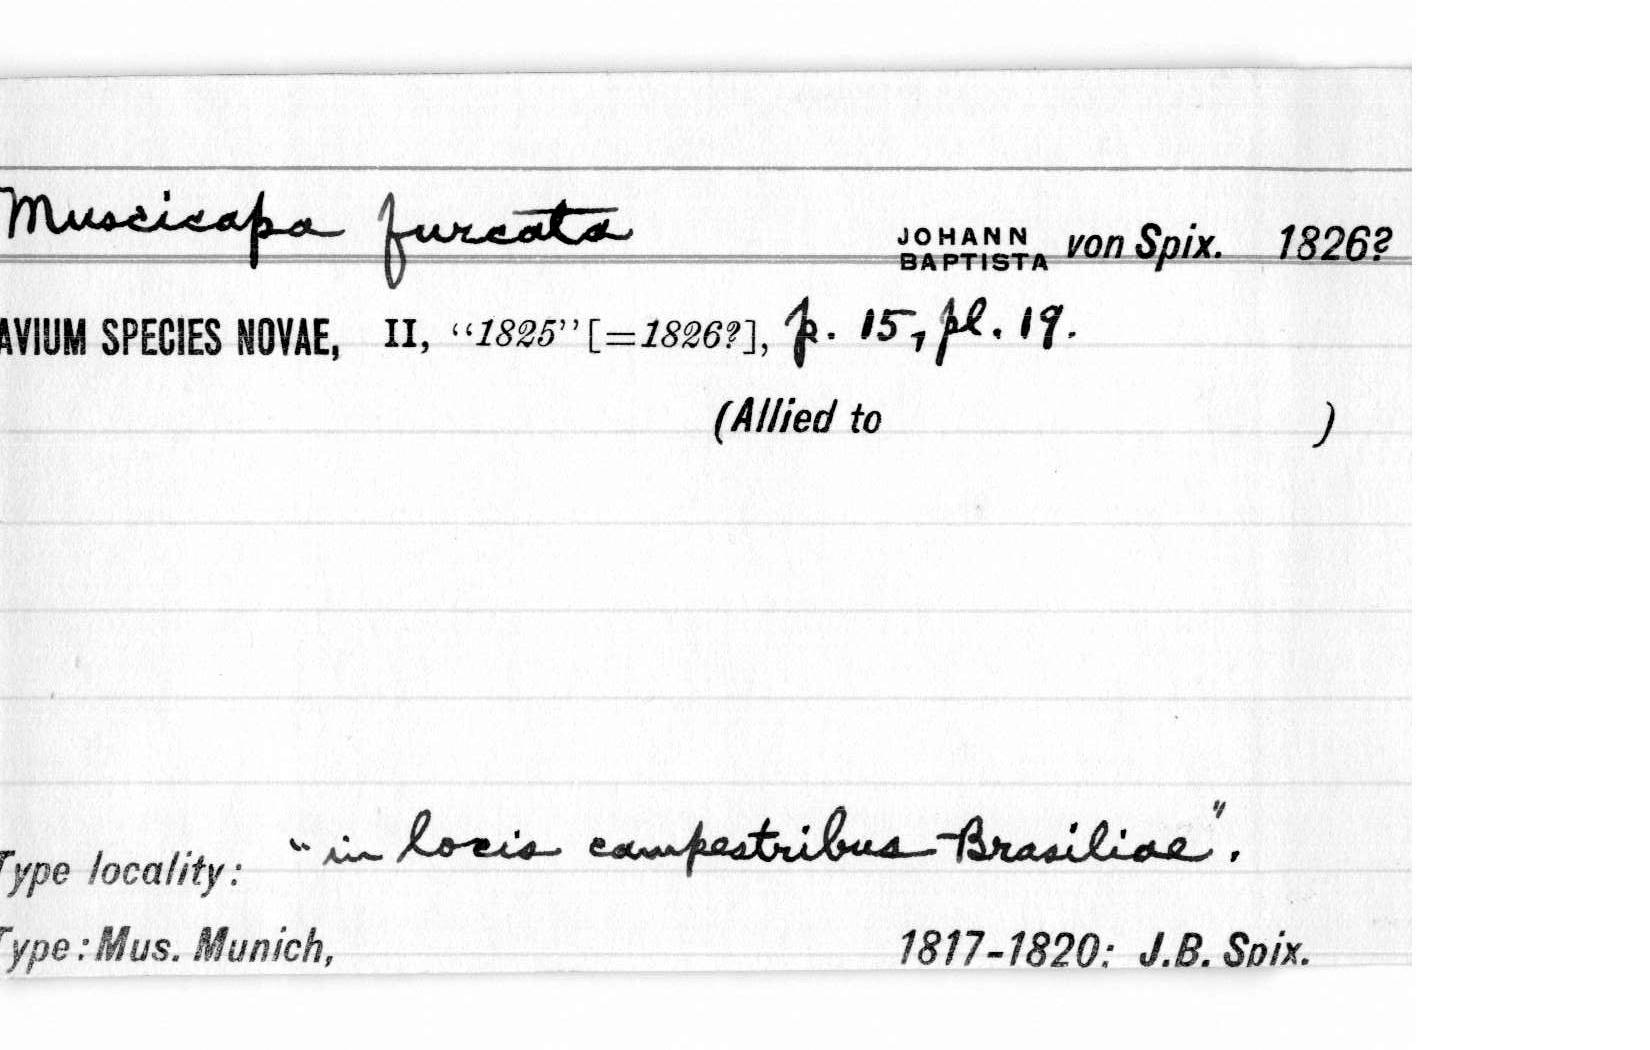 Muscicapa furcata JOHANN BAPTISTA von Spix. 1826?
AVIUM SPECIES NOVAE, II, “1825” [=1826?], p. 15, pl. 19.
(Allied to )
Type locality: "in locis campestribus Brasiliae".
Type: Mus. Munich, 1817-1820: J.B. Spix.